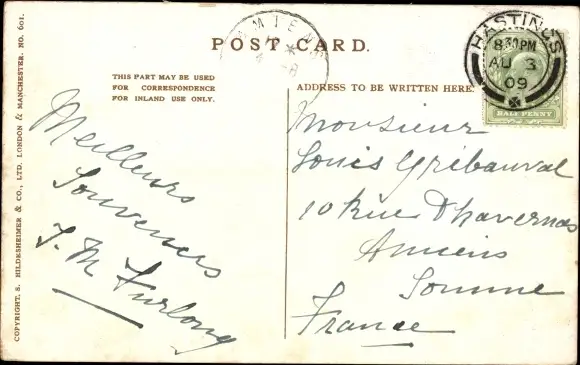 POST CARD.
AMIENS
HASTINGS
8.30 PM
AU 3
09
HALF PENNY
THIS PART MAY BE USED
FOR CORRESPONDENCE
FOR INLAND USE ONLY.
ADDRESS TO BE WRITTEN HERE.
Meilleurs
Souvenirs
J. M Furlong
Monsieur
Louis Gribauval
10 Rue Dhavernas
Amiens
Somme
France
COPYRIGHT. S. HILDESHEIMER & CO., LTD. LONDON & MANCHESTER. NO. 601.